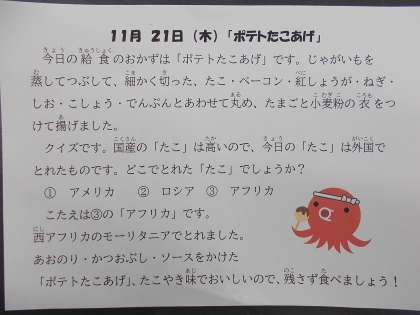 11月 21日（木）「ポテトたこあげ」
今日の給食のおかずは「ポテトたこあげ」です。じゃがいもを
蒸してつぶして、細かく切った、たこ・ベーコン・紅しょうが・ねぎ・
しお・こしょう・でんぷんとあわせて丸め、たまごと小麦粉の衣をつ
けて揚げました。
クイズです。国産の「たこ」は高いので、今日の「たこ」は外国で
とれたものです。どこでとれた「たこ」でしょうか？
① アメリカ　② ロシア　③ アフリカ
こたえは③の「アフリカ」です。
西アフリカのモーリタニアでとれました。
あおのり・かつおぶし・ソースをかけた
「ポテトたこあげ」、たこやき味でおいしいので、残さず食べましょう！